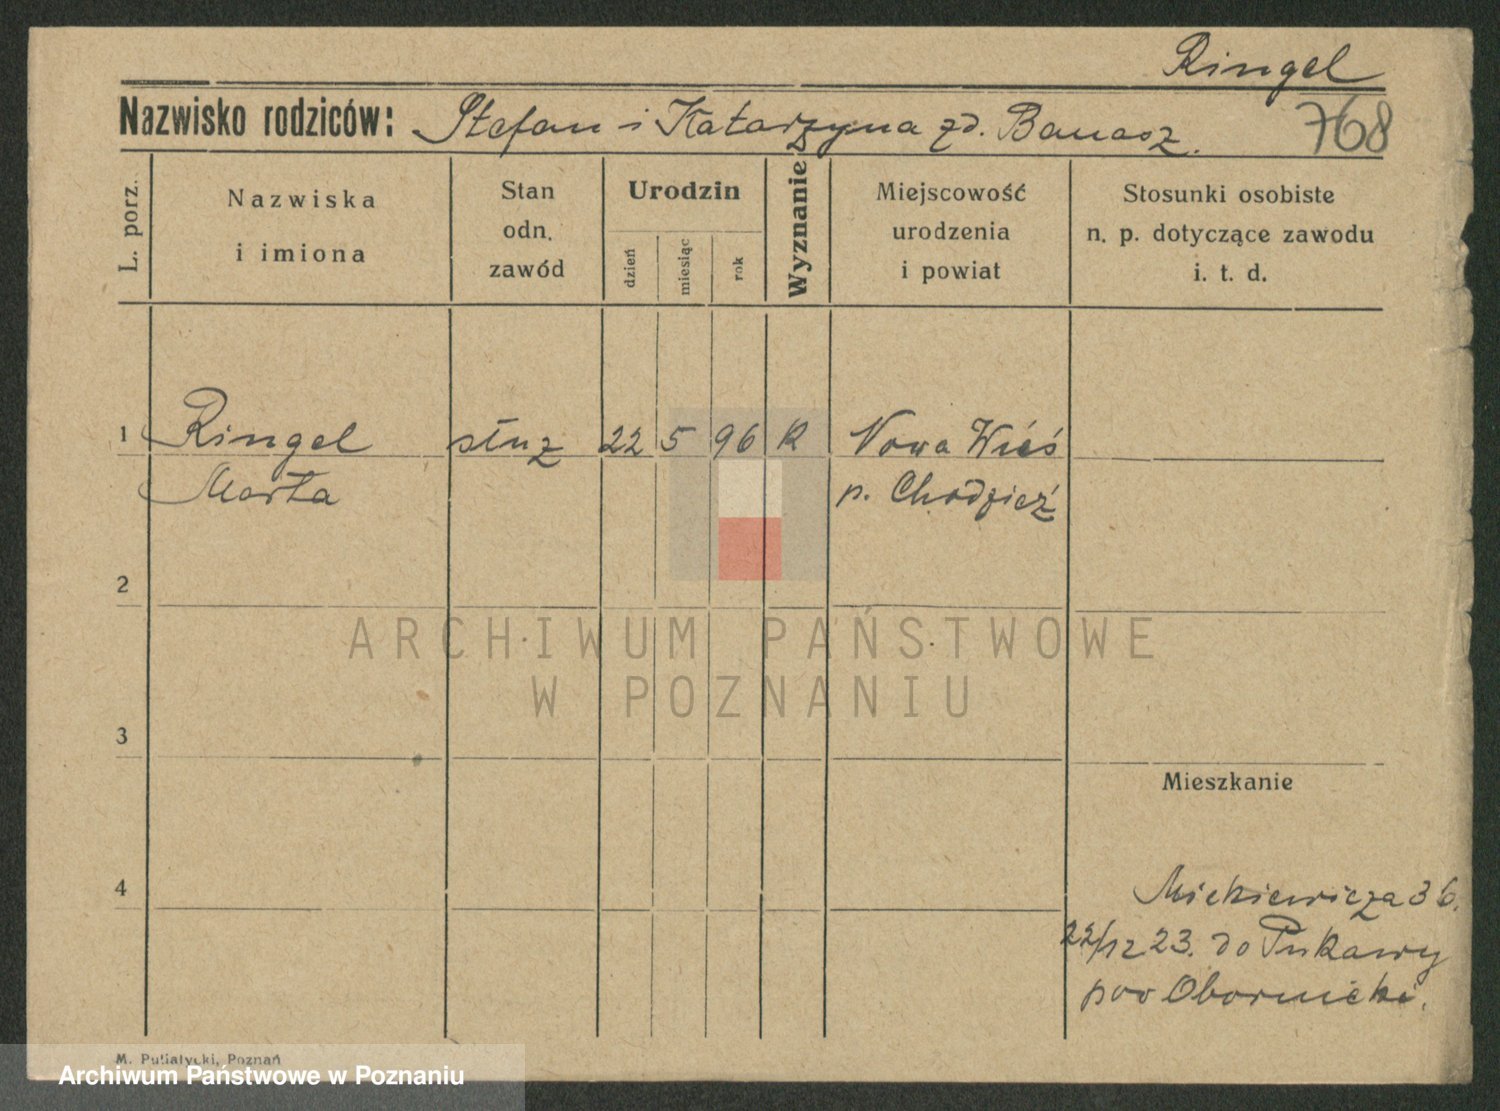 Ringel
Nazwisko rodziców: Stefan i Katarzyna zd. Banasz.
768
L. porz.
Nazwiska
i imiona
Stan
odn.
zawód
Urodzin
dzień
miesiąc
rok
Wyznanie
Miejscowość
urodzenia
i powiat
Stosunki osobiste
n. p. dotyczące zawodu
i. t. d.
1 Ringel służ 22 5 96 K Nowa Wieś
Marta p. Chodzież
2
ARCHIWUM PAŃSTWOWE
W POZNANIU
3
Mieszkanie
4
Mickiewicza 36.
22/12 23. do
pow Obornicki.
M. Putiatycki, Poznań
Archiwum Państwowe w Poznaniu